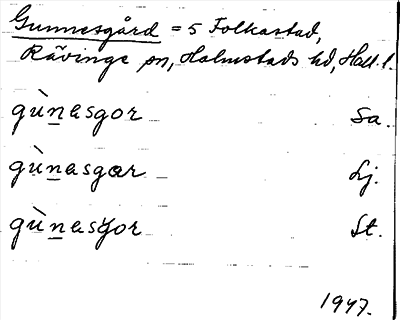 Gunnesgård = 5 Folkastad,
Rävinge sn, Halmstads hd, Hall. l.
gùnasgor Sa.
gùnasgar Lj.
gùnasgor St.
1947.